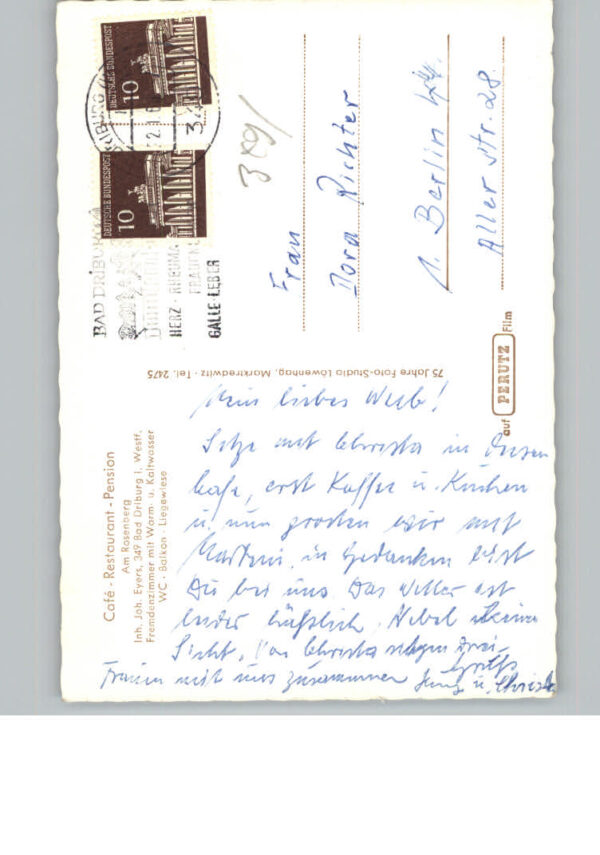 Café - Restaurant - Pension
Am Rosenberg
Inh. Joh. Evers, 349 Bad Driburg i. Westf.
Fremdenzimmer mit Warm- u. Kaltwasser
WC - Balkon - Liegewiese
Mein liebes Weib!
Sitze mit Christa in
erst Kaffee u. Kuchen
u. nun prosten wir mit
Martini, in Gedanken bist
Du bei uns Das Wetter ist
leider häßlich, Nebel u. keine
Sicht. Von Christa
Frauen mit uns zusammen
Grüße
u. Christa
75 Jahre Foto-Studio Löwenhag, Marktredwitz - Tel. 2475
auf PERUTZ Film
Frau
Dora Richter
1. Berlin 44.
Aller str. 28.
349/
DEUTSCHE BUNDESPOST
10
DEUTSCHE BUNDESPOST
10
BAD DRIBURG
HERZ - RHEUMA
FRAUEN
GALLE-LEBER